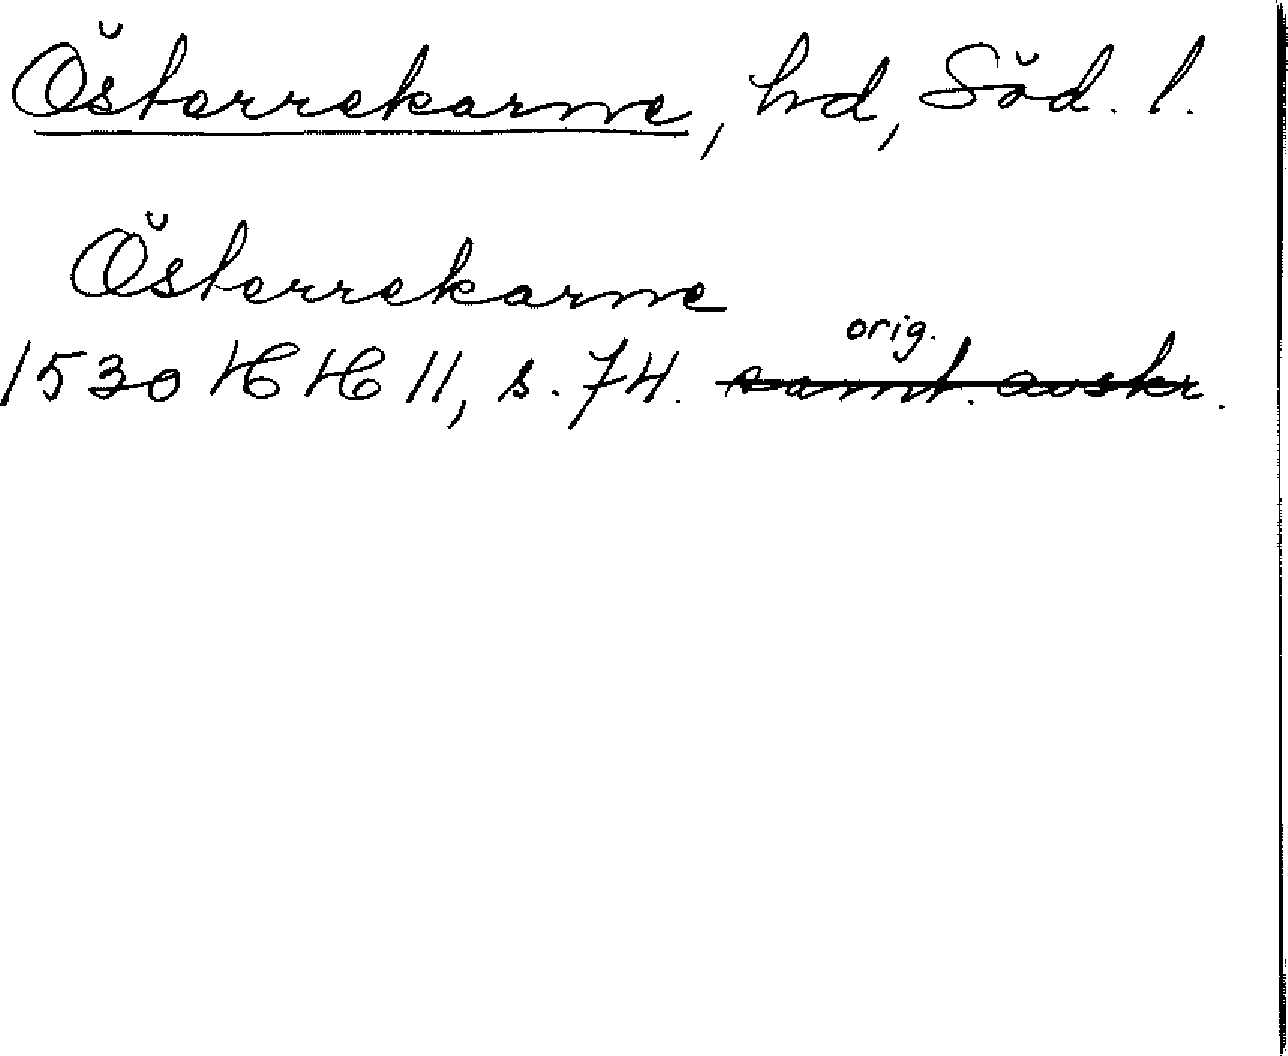 Österrekarne, hd, Söd. l.
Österrekarne
orig.
1530 HH 11, s. 74. samt. avskr.